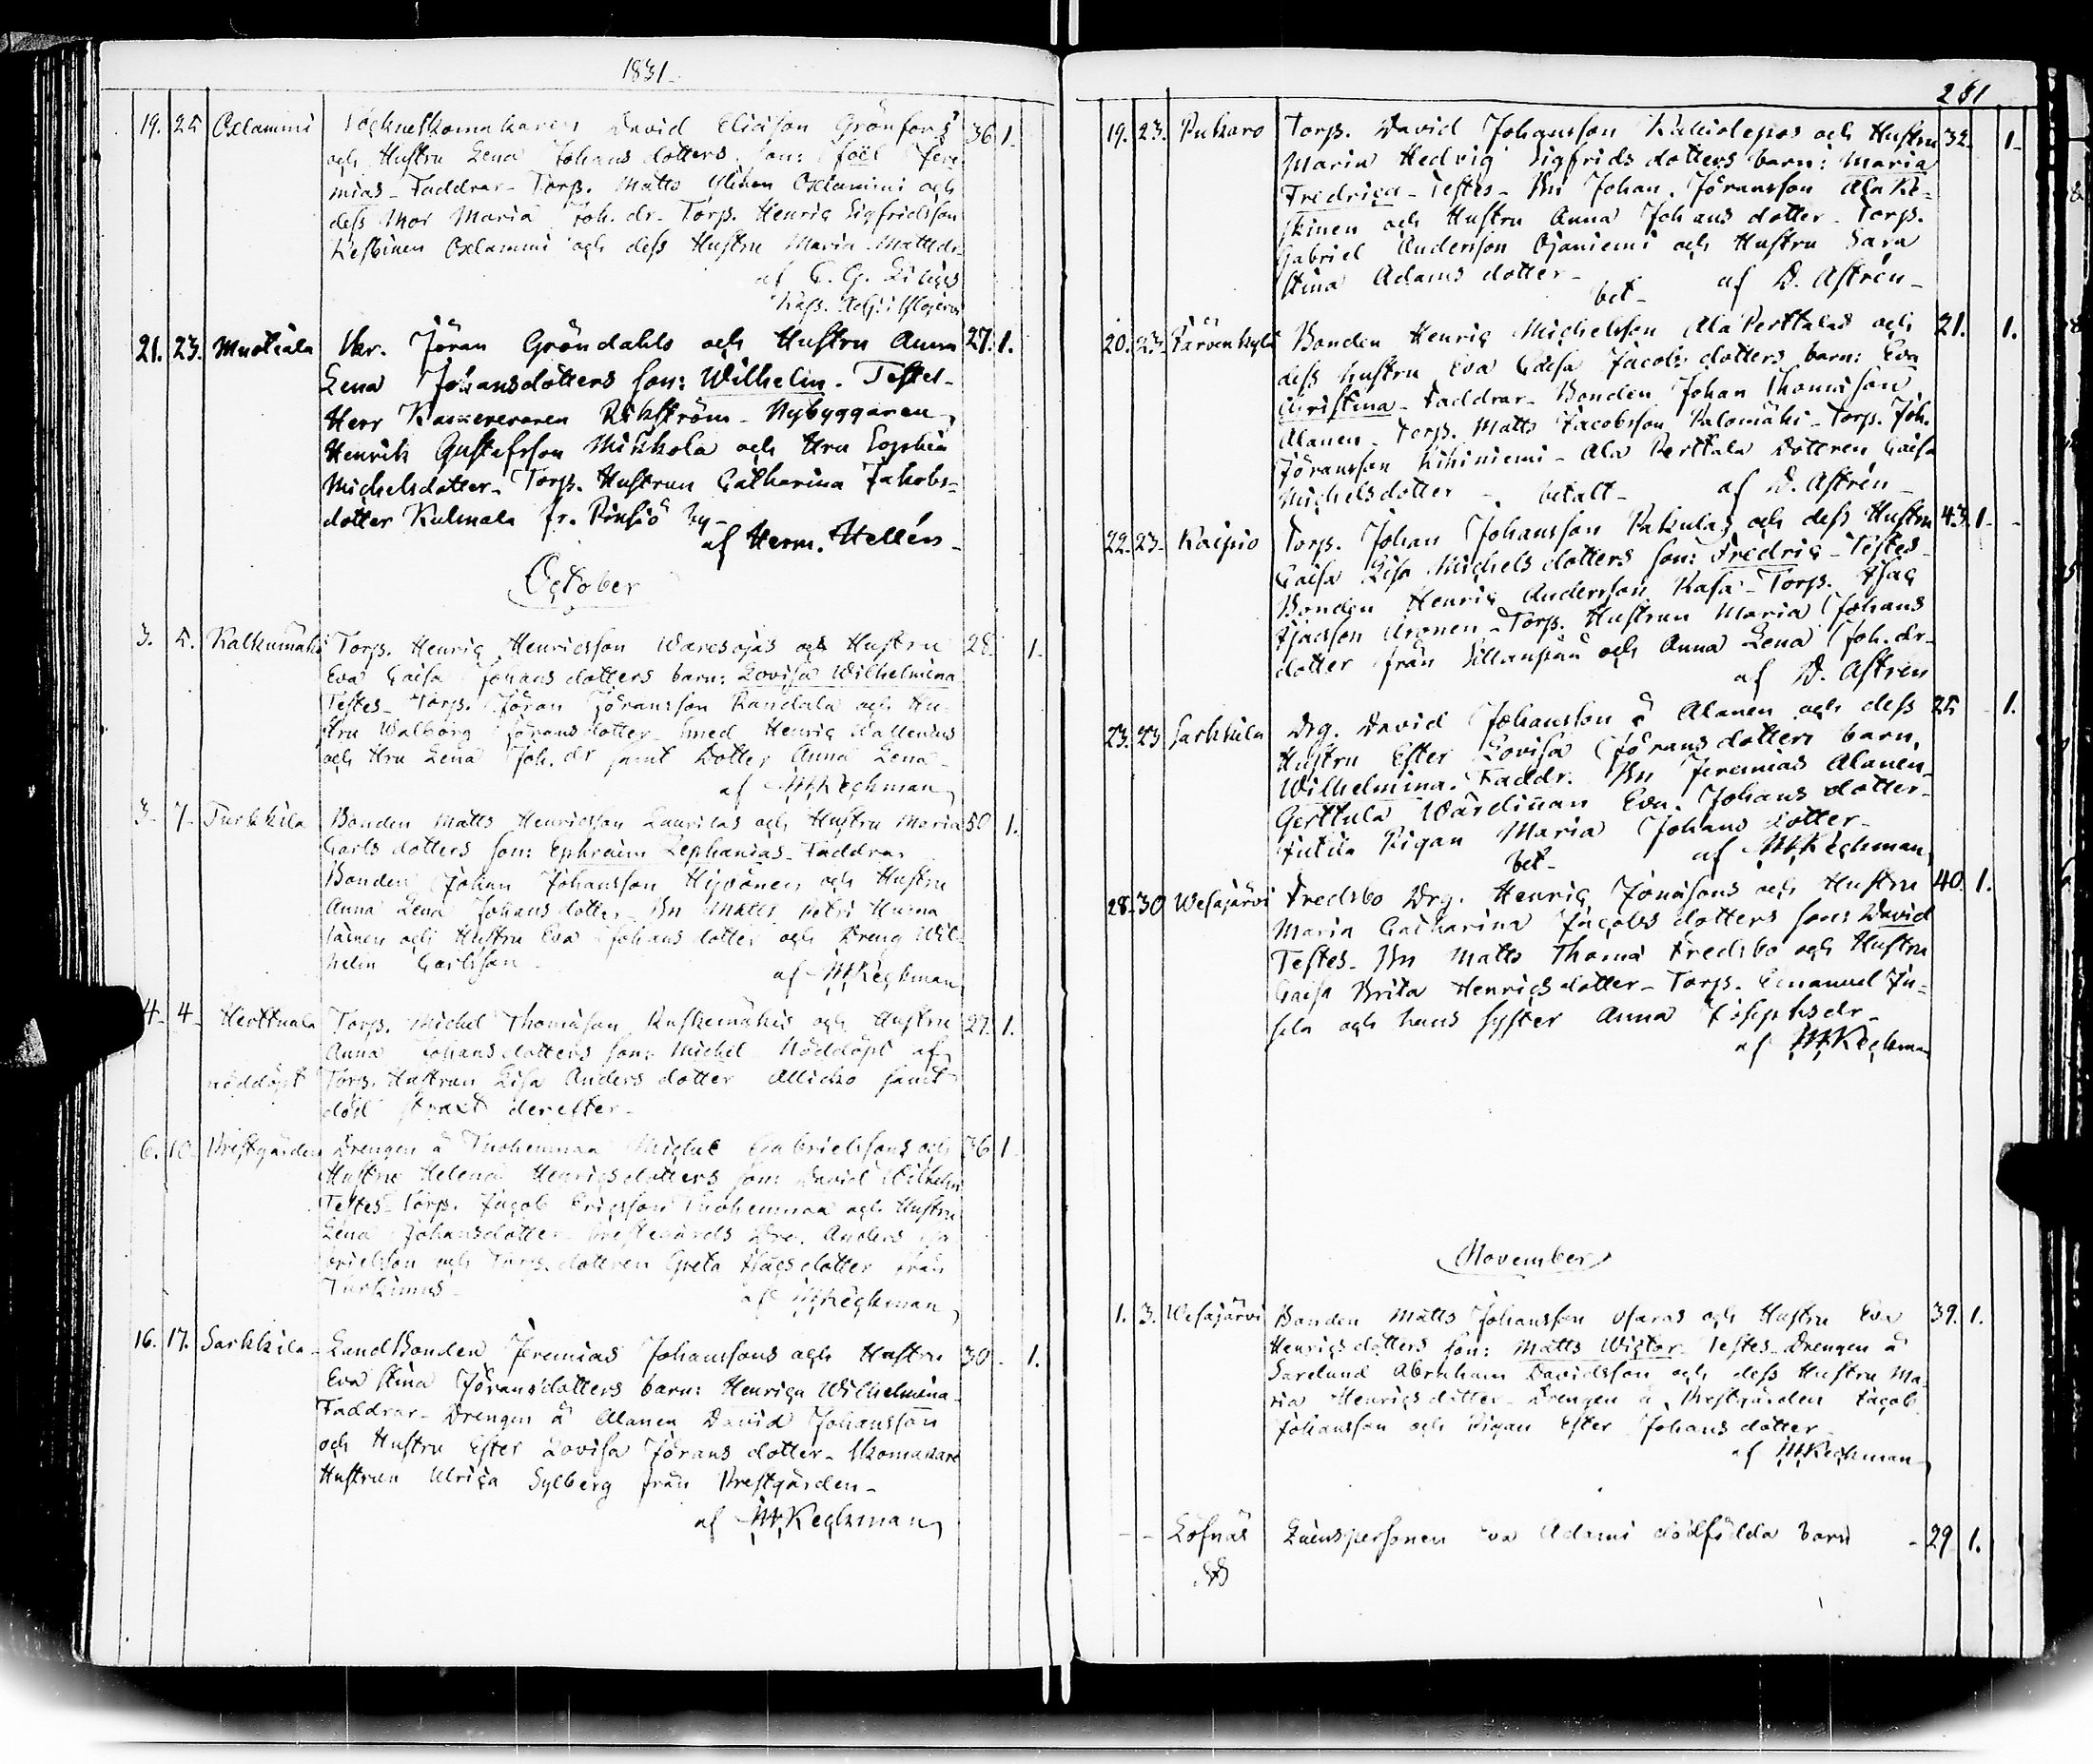 1831.
19. 25 Oxlammi Socknesskomakaren David Eliæson Grönfors 36 1.
och Hustru Lena Johans dotters son: Joel Jere
mias - Faddrar - Torp. Matts Oxlammi och
dess Mor Maria Joh. dr - Torp. Henric Sigfridsson
Oxlammi och dess Hustru Maria Mattsdr
af C. G.
21. 23. Mustiala Vr. Jöran Gröndahls och Hustru Anna 27. 1.
Lena Johansdotters son: Wilhelm. Testes -
Herr Kamereraren Rikström - Nybyggaren
Henrik Gustafsson Mikkola och Hru Sophia
Michelsdotter - Torp. Hustrun Catharina Jakobs=
dotter Kulmala fr. by -
af Herm. Hellén -
October
3. 5. Kalkumäki Torp. Henric Henricsson Waresojas och Hustru 28. 1.
Eva Caisa Johans dotters barn: Lovisa Wilhelmina
Testes - Torp. Jöran Jöransson Kandala och Hu-
stru Walborg Jörans dotter - Smed Henric Wallenius
och Hru Lena Joh. dr samt Dotter Anna Lena -
af M Keckman
3 - 7 - Turkkila Bonden Matts Henricsson Laurilas och Hustru Maria 50 1.
Carls dotters son: Ephraim Zephanias - Faddrar
Bonden Johan Johansson Hyvönen och Hustru
Anna Lena Johans dotter - Bn Matts Petri Huma
lainen och Hustru Eva Johans dotter och Dreng Wil-
helm Carlsson -
af M Keckman
4 - 4 - Herttuala Torp. Michel Thomæson Ruskemäkis och Hustru 27. 1.
Anna Johans dotters son: Michel Nöddöpt af
nöddöpt Torp. Hustrun Lisa Anders dotter samt
död straxt derefter -
6. 10 Prestgården Drengen å Tuohenmaa Michel Gabrielssons och 36 1
Hustru Helena Henrics dotters son: David Wilhelm
Testes - Torp. Jacob Ericsson Tuohenmaa och Hustru
Lena Johansdotter - Prestgårds Drg. Anders Ga
brielsson och Torp. dotteren Greta Isacs dotter från
af M Keckman
16. 17. Sarkkila - Landbonden Jeremias Johanssons och Hustru 30 - 1.
Eva Stina Jöransdotters barn: Henrica Wilhelmina -
Faddrar - Drengen å Alanen David Johansson
och Hustru Ester Lovisa Jörans dotter - Skomakare
Hustrun Ulrica Sylberg från Prestgården -
af M Keckman
261
19. 23. Puharo Torp. David Johansson och Hustru 32. 1 -
Maria Hedvig Sigfrids dotters barn: Maria
Fredrica - Testes - Bn Johan Jöransson Ala Ke-
skinen och Hustru Anna Johans dotter - Torp.
Gabriel Andersson Ojaniemi och Hustru Sara
Stina Adams dotter -
bet - af D. Astrén -
20. 23. Järvenkylä Bonden Henric Michelsson Ala Perttalas och 21. 1.
dess hustru Eva Caisa Jacobs dotters barn: Eva
Christina - Faddrar - Bonden Johan Thomæson
Alanen - Torp. Matts Jacobsson Palomäki - Torp. Joh.
Jöransson Kihiniemi - Ala Perttala Dotteren Caisa
Michelsdotter - betalt - af D. Astrén -
22. 23 - Kaipio Torp. Johan Johansson Pakulas och dess Hustru 43. 1 -
Caisa Lisa Michels dotters son: Fredric - Testes
Bonden Henric Andersson Kasa - Torp. Isac
Isacsson Aronen - Torp. Hustrun Maria Johans
dotter från Sillanpää och Anna Lena Joh. dr -
af D. Astrén
23. 23 Sarkkila Drg. David Johansson å Alanen och dess 25 1.
Hustru Ester Lovisa Jörans dotters barn,
Wilhelmina. Faddr. Bn Jeremias Alanen -
Gerttula Wärdinnan Eva Johans dotter -
Jutila Pigan Maria Johans dotter -
bet - af M Keckman
28. 30 Wesajärvi Fredsbo Drg. Henric Jonæsons och Hustru 40. 1.
Maria Catharina Jacobs dotters son: David
Testes - Bn Matts Thomæ Fredsbo och Hustru
Caisa Brita Henrics dotter - Torp. Emanuel Ju-
sela och hans syster Anna Josephsdr -
af M Keckman
November
1. 3. Wesajärvi Bonden Matts Johansson Osaras och Hustru Eva 39. 1.
Henrics dotters son: Matts Wictor Testes - Drengen å
Sarelund Abraham Davidsson och dess Hustru Ma-
ria Henrics dotter - Drengen å Prestgården Jacob
Johansson och Pigan Ester Johans dotter
af M Keckman
- - Löfnäs Qvinspersonen Eva Adami dödfödda barn - 29 1.